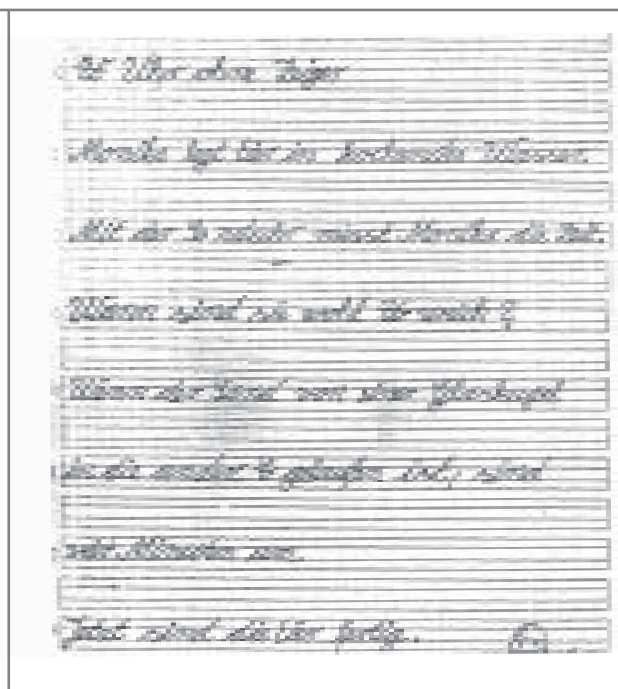 Uhr ohne Zeiger
Monika legt Eier in kochendes Wasser.
Mit der misst Monika die Zeit.
Wann sind sie wohl weich?
Wenn der Sand von einer Glaskugel
in die andere gelaufen ist, sind
acht Minuten um.
Jetzt sind die Eier fertig.